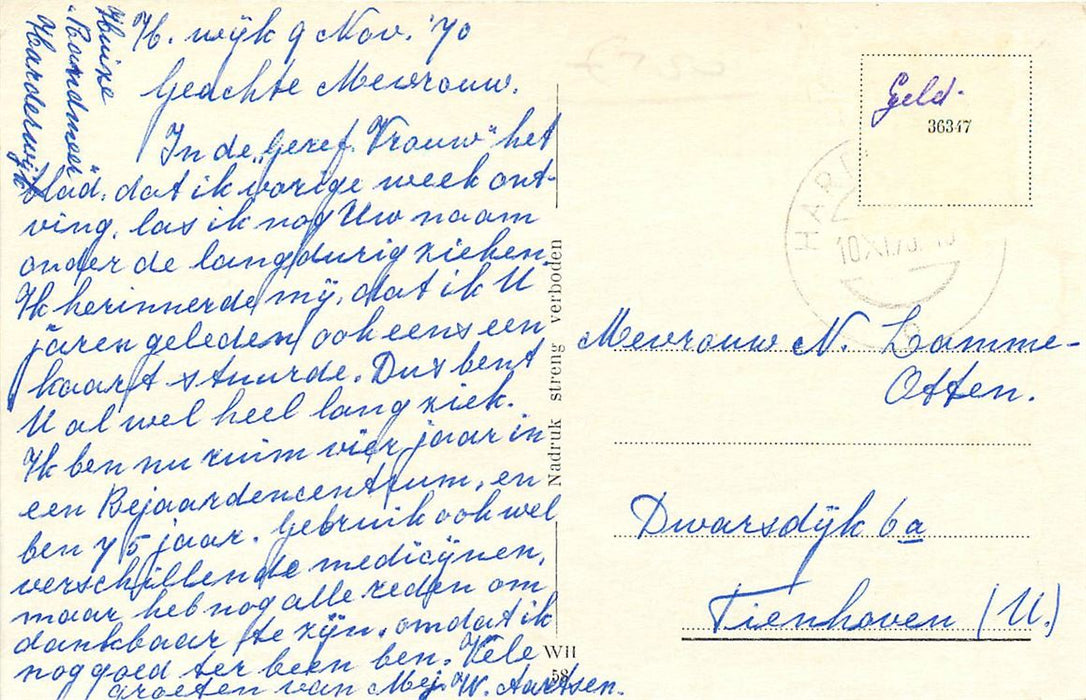 Huize
"Randmeer"
Harderwijk
H. wijk 9 Nov. '70
Geachte Mevrouw.
In de „Geref. Vrouw" het
blad, dat ik vorige week ont-
ving, las ik nog Uw naam
onder de langdurig zieken.
Ik herinnerde mij, dat ik U
jaren geleden ook eens een
kaart stuurde. Dus bent
U al wel heel lang ziek.
Ik ben nu ruim vier jaar in
een Bejaardencentrum, en
ben 75 jaar. Gebruik ook wel
verschillende medicijnen,
maar heb nog alle reden om
dankbaar te zijn, omdat ik
nog goed ter been ben. Vele
groeten van Mej. W. Aartsen.
Nadruk streng verboden
WH
58
Geld.
36347
HARD
10.XI.70
Mevrouw N. Lamme-
Otten.
Dwarsdijk 6a
Tienhoven (U.)